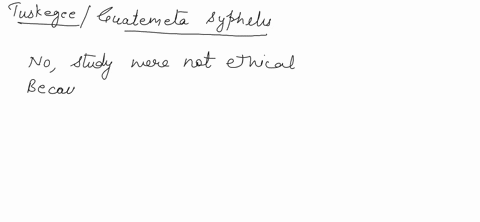 Tuskegee / Guatemeta Syphelis
No, study were not ethical
Becau